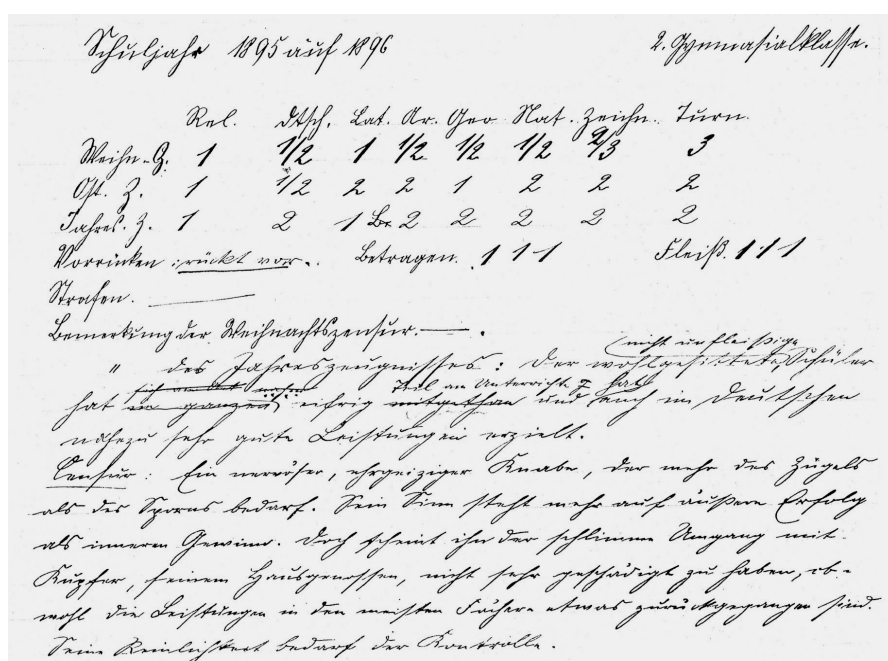 Schuljahr 1895 auf 1896 2. Gymnasialklasse.
Rel. dtsch. Lat. Ar. Geo Nat. Zeichn. Turn.
Weihn.-Z. 1 1/2 1 1/2 1/2 1/2 2/3 3
Ost. Z. 1 1/2 2 2 1 2 2 2
Jahres. Z. 1 2 1 Br. 2 2 2 2 2
Vorrücken: rückt vor. Betragen. 1 1 1 Fleiß. 1 1 1
Strafen. —
Bemerkung der Weihnachtszensur. — .
nicht unfleißige
" des Jahreszeugnisses: Der wohlgesittete, Schüler
Teil am Unterricht hat
hat im ganzen eifrig mitgethan und auch im Deutschen
nahezu sehr gute Leistungen erzielt.
Censur: Ein nervöser, ehrgeiziger Knabe, der mehr des Zügels
als des Sporns bedarf. Sein Sinn steht mehr auf äußeren Erfolg
als inneren Gewinn. Doch scheint ihn der schlimme Umgang mit
Kupfer, seinem Hausgenossen, nicht sehr geschädigt zu haben, ob-
wohl die Leistungen in den meisten Fächern etwas zurückgegangen sind.
Seine Reinlichkeit bedarf der Kontrolle.